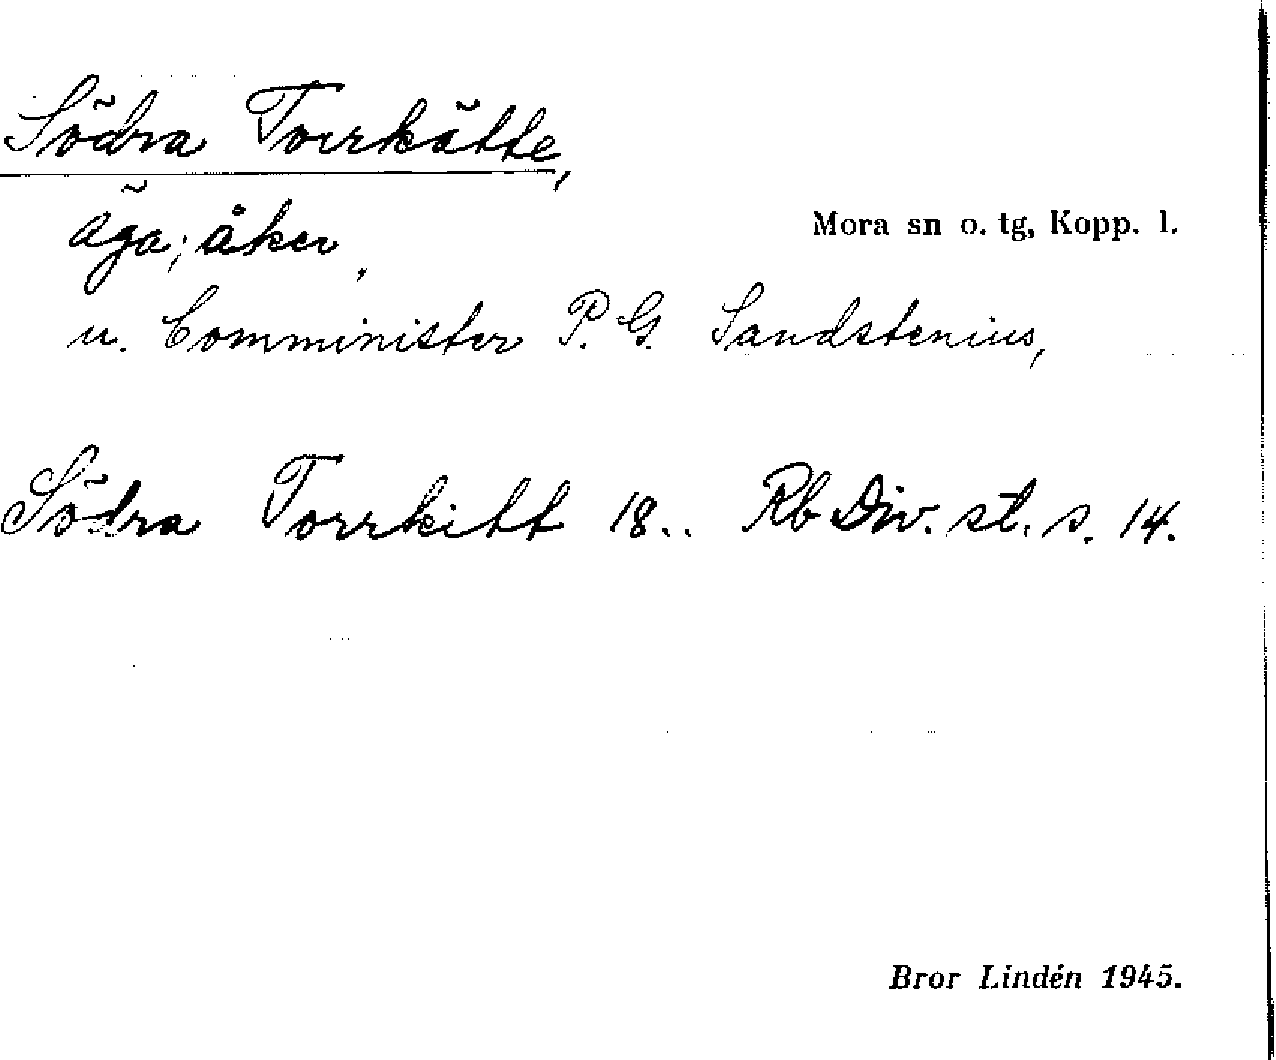 Södra Torrkätte,
äga; åker,
Mora sn o. tg, Kopp. l.
u. Comminister P. G. Sandstenius,
Södra Torrkitt 18.. Rb Div. st. s. 14.
Bror Lindén 1945.